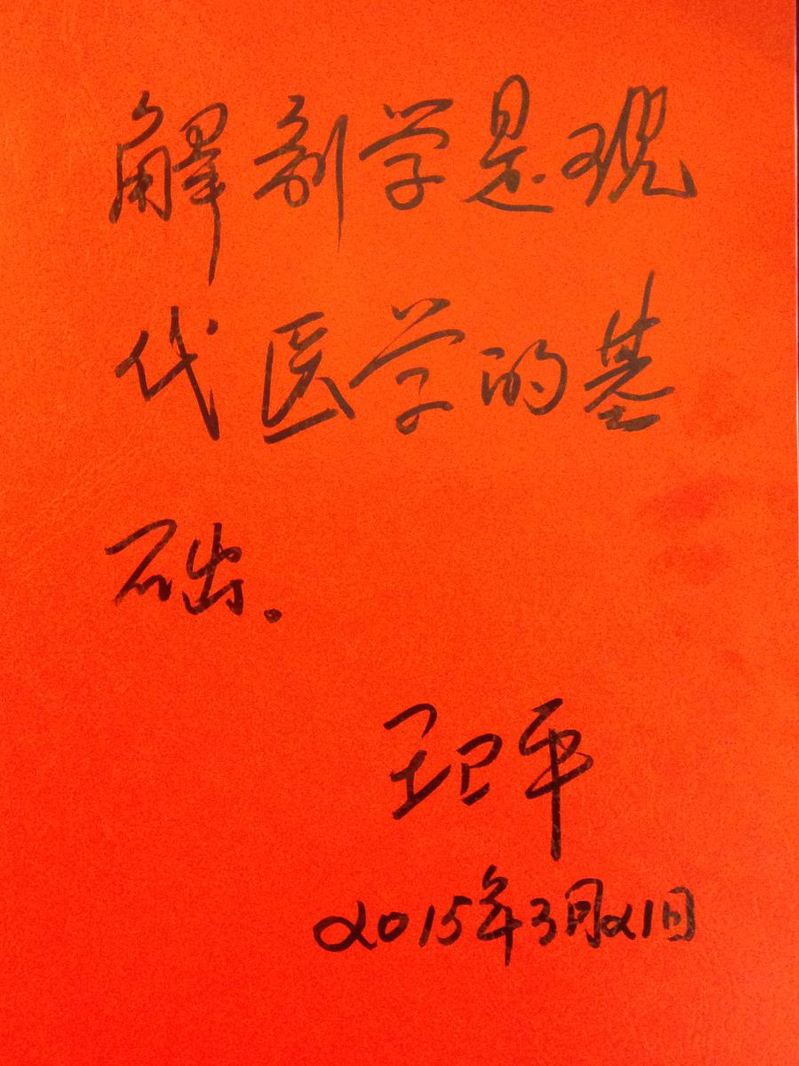 解剖学是现
代医学的基
础。
王卫平
2015年3月21日